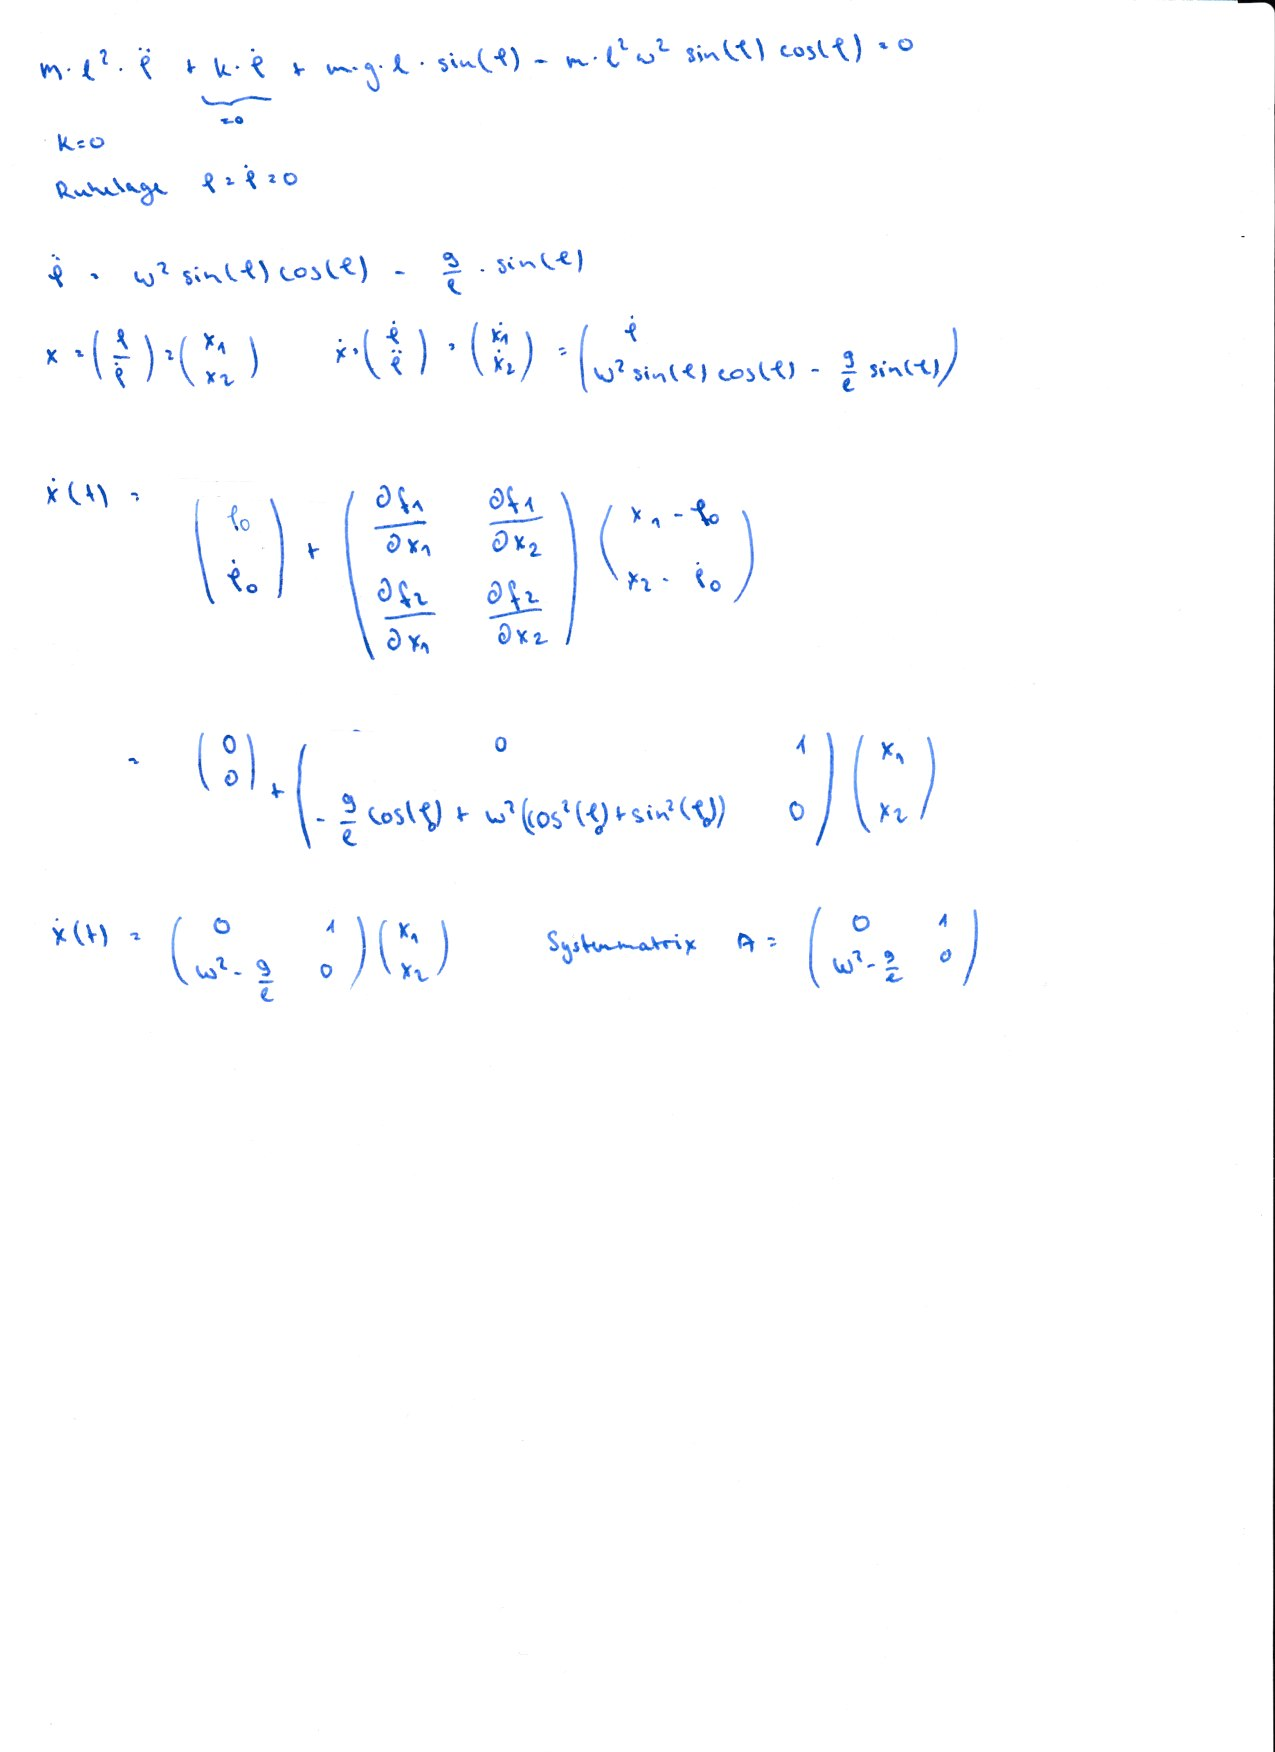 m·l²·φ̈ + k·φ̇ + m·g·l·sin(φ) - m·l²ω² sin(φ) cos(φ) = 0
=0
k=0
Ruhelage φ = φ̇ = 0
φ̈ = ω² sin(φ) cos(φ) - g/l · sin(φ)
x = (φ / φ̇) = (x₁ / x₂) ẋ = (φ̇ / φ̈) = (ẋ₁ / ẋ₂) = (φ̇ / ω² sin(φ) cos(φ) - g/l sin(φ))
ẋ(t) = (φ₀ / φ̇₀) + (∂f₁/∂x₁ ∂f₁/∂x₂ / ∂f₂/∂x₁ ∂f₂/∂x₂) (x₁ - φ₀ / x₂ - φ̇₀)
= (0 / 0) + (0 1 / -g/l cos(φ₀) + ω²(cos²(φ₀) + sin²(φ₀)) 0) (x₁ / x₂)
ẋ(t) = (0 1 / ω² - g/l 0) (x₁ / x₂) Systemmatrix A = (0 1 / ω² - g/l 0)